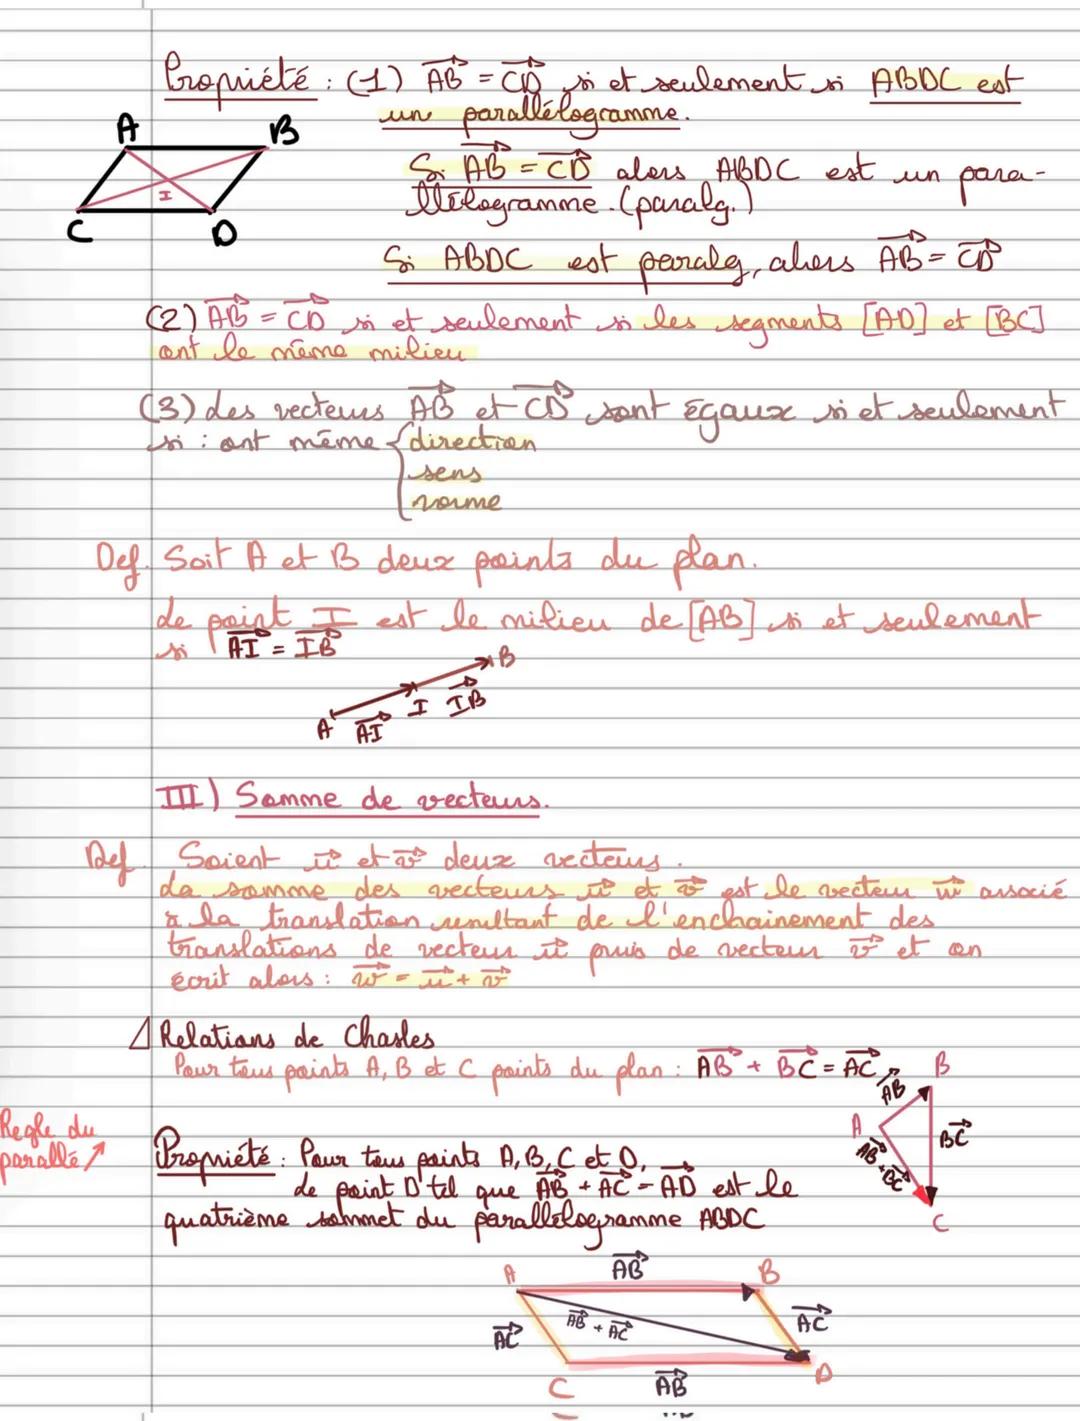 Propriété : (1) AB⃗ = CD⃗ si et seulement si ABDC est
un parallélogramme.
A B
I
C D
Si AB⃗ = CD⃗ alors ABDC est un para-
llélogramme. (paralg.)
Si ABDC est paralg, alors AB⃗ = CD⃗
(2) AB⃗ = CD⃗ si et seulement si les segments [AD] et [BC]
ont le même milieu
(3) des vecteurs AB⃗ et CD⃗ sont égaux si et seulement
si : ont même { direction
sens
norme
Def. Soit A et B deux points du plan.
Le point I est le milieu de [AB] si et seulement
si AI⃗ = IB⃗
B
A AI⃗ I IB⃗
III) Somme de vecteurs.
Def. Soient u⃗ et v⃗ deux vecteurs.
La somme des vecteurs u⃗ et v⃗ est le vecteur w⃗ associé
à la translation resultant de l'enchainement des
translations de vecteur u⃗ puis de vecteur v⃗ et on
écrit alors : w⃗ = u⃗ + v⃗
Relations de Chasles
Pour tous points A, B et C points du plan : AB⃗ + BC⃗ = AC⃗
B
AB⃗
A
BC⃗
AB⃗ + BC⃗
C
Regle du
parallé ↗
Propriété : Pour tous points A, B, C et D,
Le point D tel que AB⃗ + AC⃗ = AD⃗ est le
quatrième sommet du parallélogramme ABDC
A AB⃗ B
AC⃗ AB⃗ + AC⃗ AC⃗
C AB⃗ D